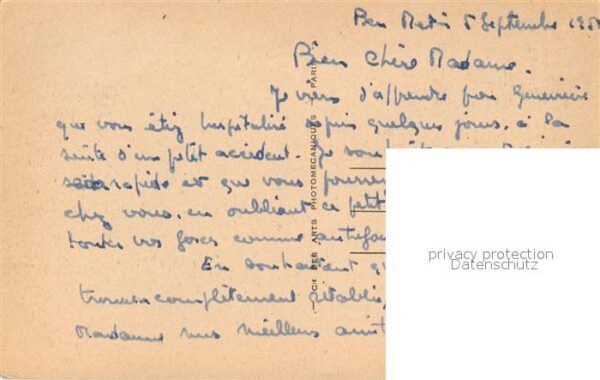 5 Septembre
Bien Chère Madame.
Je viens d'apprendre par Geneviève
que vous étiez hospitalisé depuis quelques jours, à la
suite d'un petit accident. Je
rapide et que vous
chez vous, en oubliant ce petit
toutes vos forces comme autrefois
En souhaitant
complètement
Madame mes meilleurs
DES ARTS PHOTOMECANIQUES PARIS
privacy protection
Datenschutz